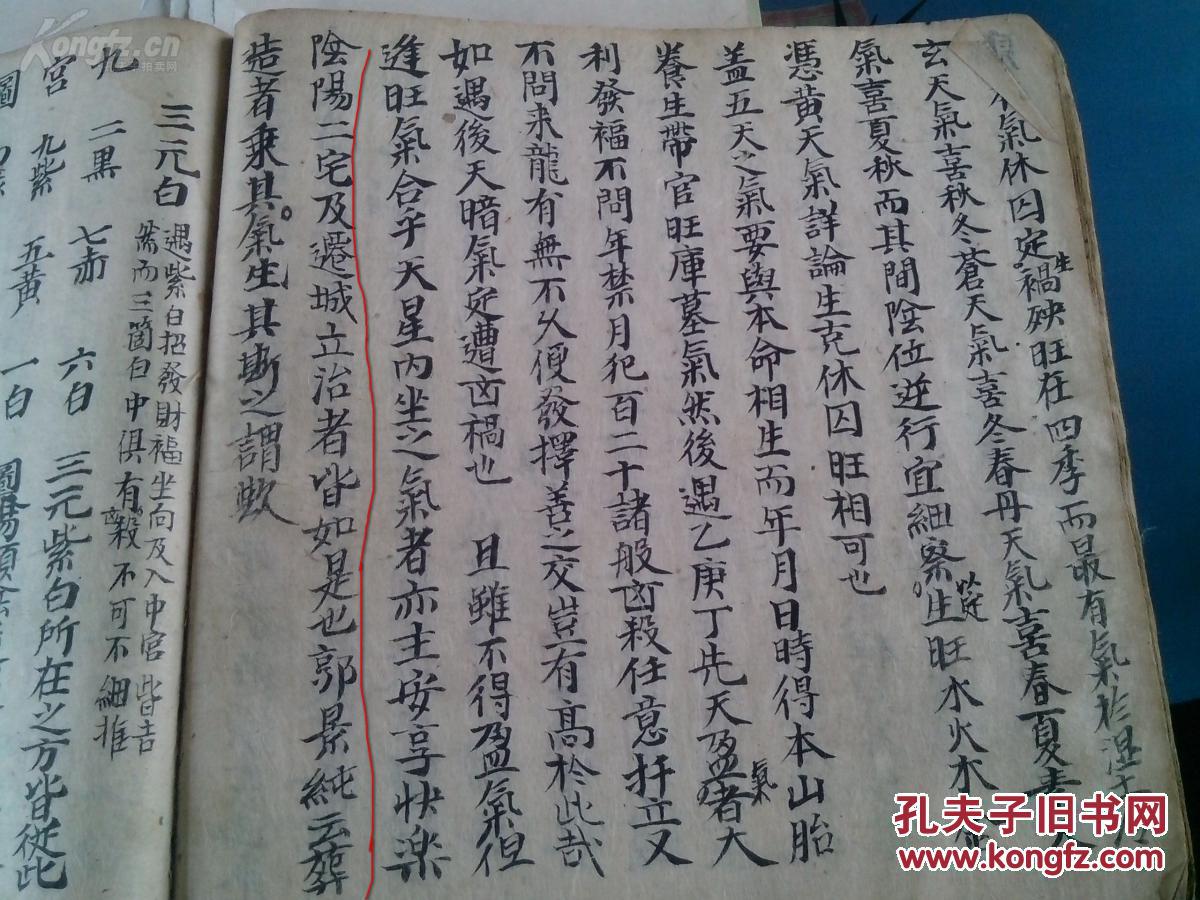 氣休囚定生禍殃旺在四季而最有氣於
玄天氣喜秋冬蒼天氣喜冬春丹天氣喜春夏
氣喜夏秋而其間陰位逆行宜細察從生旺水火木
憑黃天氣詳論生克休囚旺相可也
盖五天之氣要與本命相生而年月日時得本山胎
養生帶官旺庫墓氣然後遇乙庚丁先天盈氣者大
利發福不問年禁月犯百二十諸般凶殺任意扦立又
不問来龍有無不久便發擇善之交豈有高於此哉
如遇後天暗氣定遭凶禍也 且雖不得盈氣但
逢旺氣合乎天星內坐之氣者亦主安享快樂
陰陽二宅及遷城立治者皆如是也郭景純云葬
者乘其氣生其斯之謂歟
三元白
遇紫白招發財福坐向及入中宮皆吉
然而三箇白中俱有凶殺不可不細推
九 二黑 七赤 六白 三元紫白所在之方皆從此
宮 九紫 五黃 一白
圖
Kongfz.cn
孔夫子旧书网
www.kongfz.com